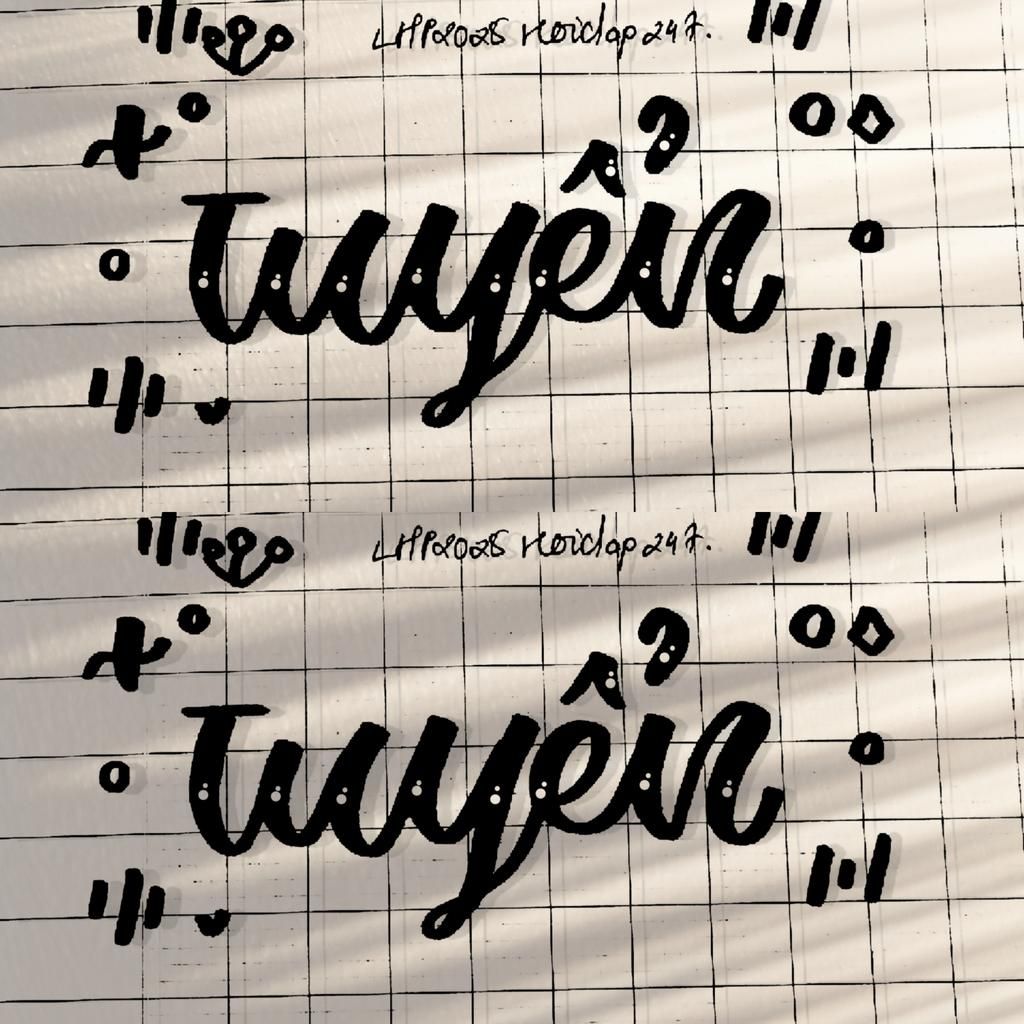 LHP2025 Hoidap247.
Tuyển
LHP2025 Hoidap247.
Tuyển